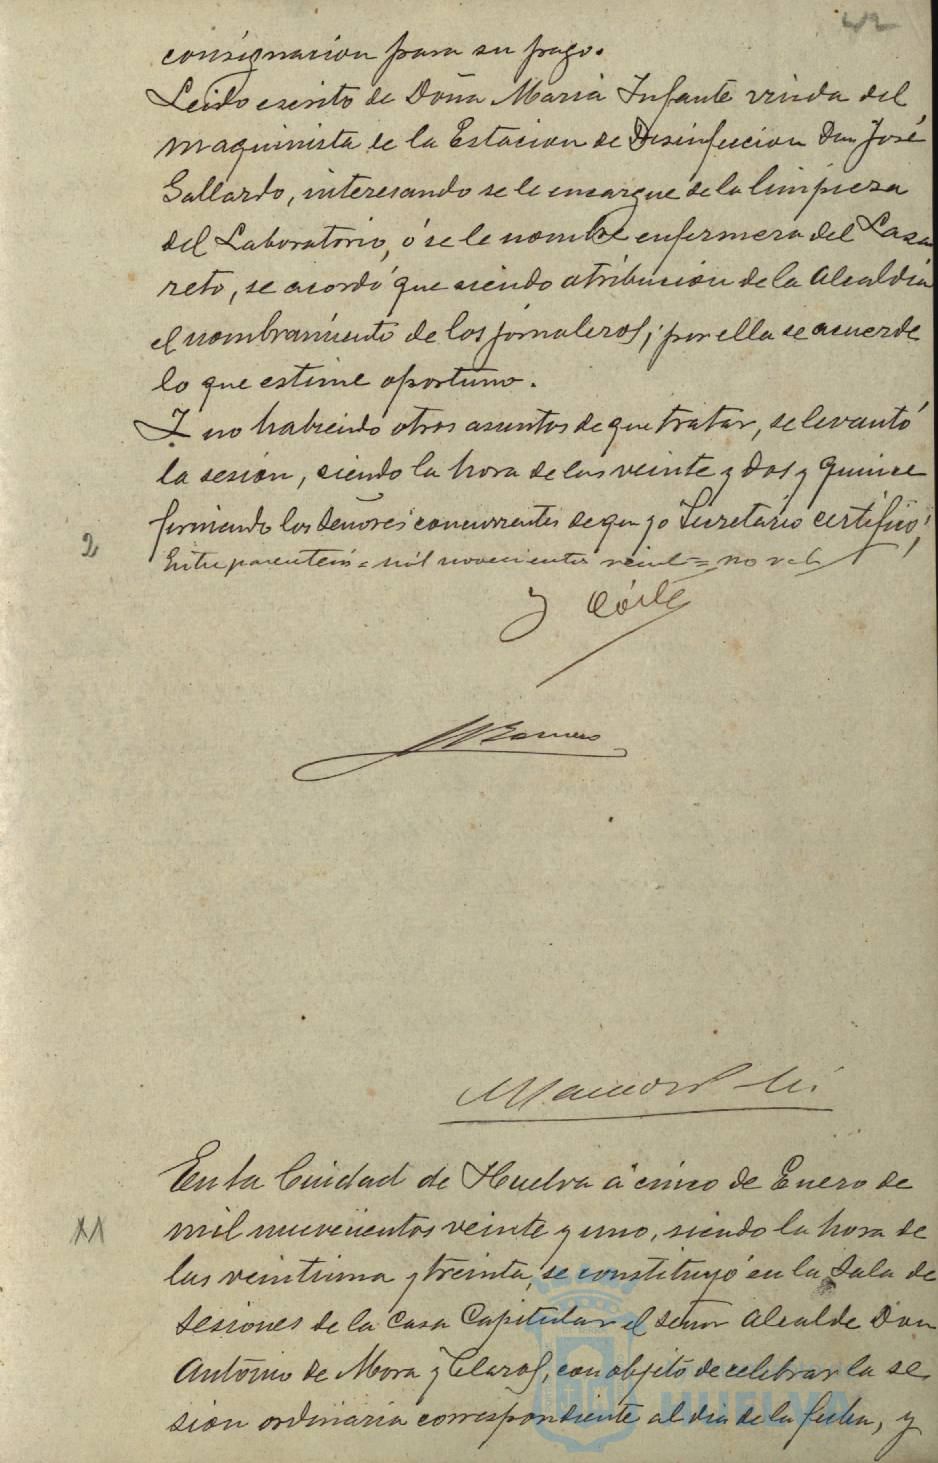 42
consignacion para su pago.
Leido escrito de Doña Maria Infante viuda del
maquinista de la Estacion de Desinfeccion Don José
Gallardo, interesando se le encargue de la limpieza
del Laboratorio, ó se le nombre enfermera del Laza
reto, se acordó que siendo atribucion de la Alcaldia
el nombramiento de los jornaleros, por ella se acuerde
lo que estime oportuno.
Y no habiendo otros asuntos de que tratar, se levantó
la sesión, siendo la hora de las veinte y dos y quince
firmando los Señores concurrentes de que yo Secretario certifico;
2
Entre parentesis = mil novecientos veint = no vale
y
En la Ciudad de Huelva á cinco de Enero de
mil nuevecientos veinte y uno, siendo la hora de
las veintiuna y treinta, se constituyó en la Sala de
Sesiones de la Casa Capitular el Señor Alcalde Don
Antonio de Mora y Claros, con objeto de celebrar la se
sion ordinaria correspondiente al dia de la fecha, y
HUELVA